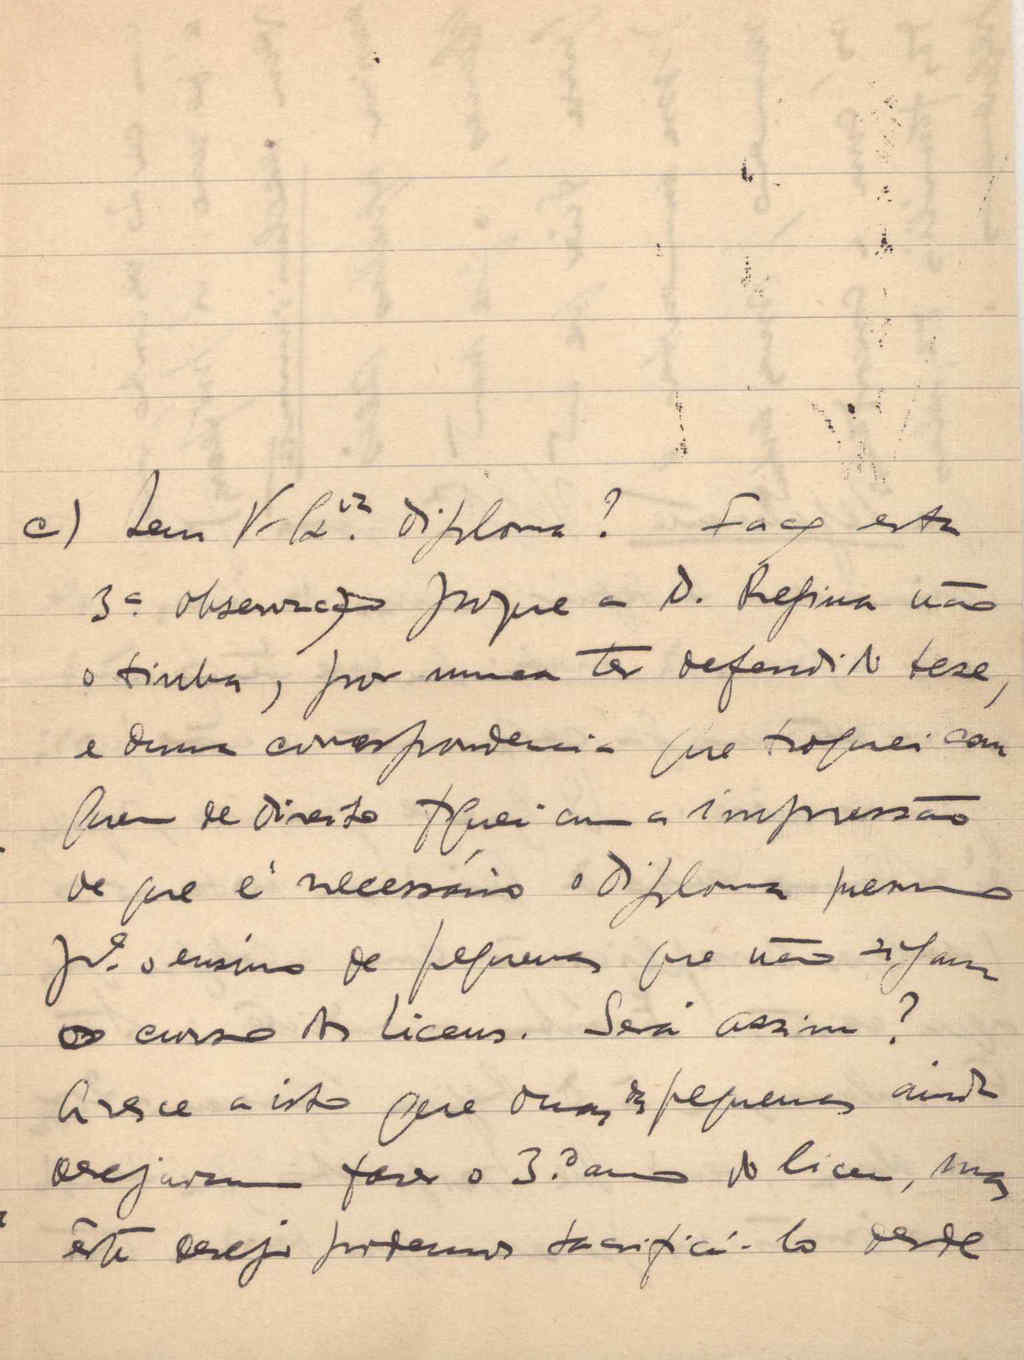 c) Tem V. Ex.ª diploma? Faço esta
3ª observação porque a D. Regina não
o tinha, por nunca ter defendido tese,
e duma correspondencia que troquei com
quem de direito fiquei com a impressão
de que é necessário o diploma mesmo
pª o ensino de pequenas que não sigam
o curso dos liceus. Será assim?
Acresce a isto que duas das pequenas ainda
desejavam fazer o 3.º ano do liceu, mas
êste desejo podemos sacrificá-lo desde